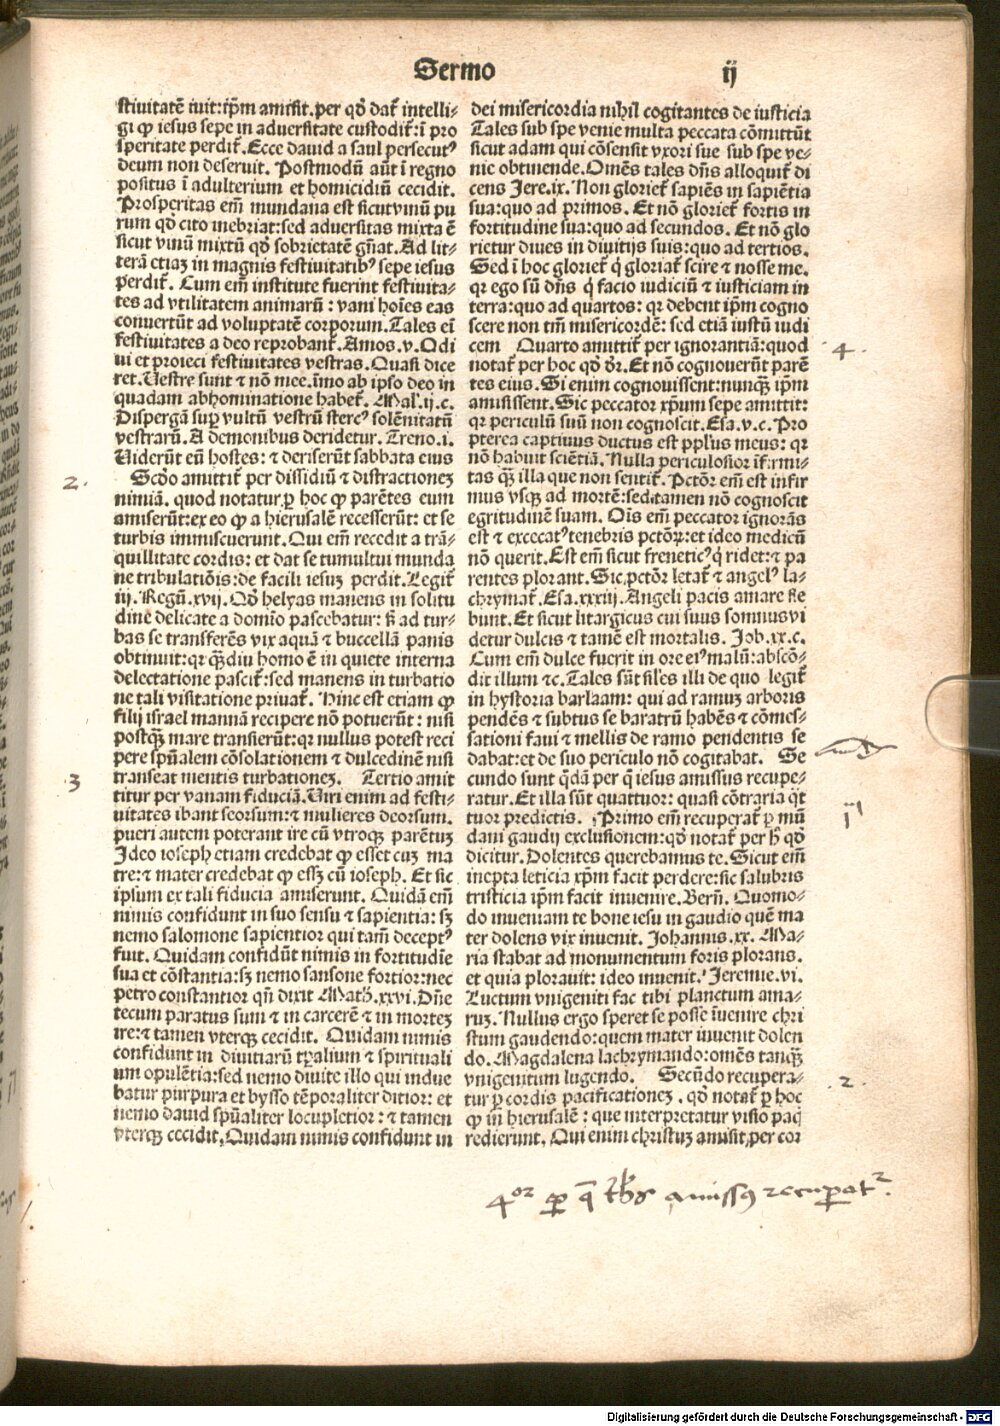 Sermo ij
stiuitatē iuit:ip̄m amisit.per qd̄ dat̄ intelli-
gi ꝙ iesus sepe in aduersitate custodit̄:ī pro
speritate perdit̄.Ecce dauid a saul persecutꝰ
deum non deseruit. Postmodū aūt ī regno
positus ī adulterium et homicidiū cecidit.
Prosperitas em̄ mundana est sicut vinū pu
rum qd̄ cito inebriat:sed aduersitas mixta ē
sicut vinū mixtū qd̄ sobrietatē gn̄at.Ad lit-
terā etiaz in magnis festiuitatibꝰ sepe iesus
perdit̄. Cum em̄ institute fuerint festiuita-
tes ad vtilitatem animarū : vani hoīes eas
conuertūt ad voluptatē corporum.Tales ei̅
festiuitates a deo reprobant̄.Amos.v.Odi
ui et proieci festiuitates vestras. Quasi dice
ret.Uestre sunt ⁊ nō mee.īmo ab ipso deo in
quadam abhominatione habet̄. Mal̓.ij.c.
Dispergā suꝑ vultū vestrū stercꝰ solēnitatū
vestrarū. A demonibus deridetur. Treno.i.
Uiderūt eū hostes: ⁊ deriserūt sabbata eius
2. Scd̓o amittit̄ per dissidiū ⁊ distractionez
nimiā. quod notatur ꝑ hoc ꝙ parētes eum
amiserūt:ex eo ꝙ a hierusalē recesserūt: et se
turbis immiscuerunt. Qui em̄ recedit a trā-
quillitate cordis: et dat se tumultui munda
ne tribulatiōis:de facili iesuz perdit. Legit̄
iij. Regū.xvij. Qd̄ helyas manens in solitu
dine delicate a domīo pascebatur: s̄ ad tur-
bas se transferēs vix aquā ⁊ buccellā panis
obtinuit:qꝛ qꝙ̄diu homo ē in quiete interna
delectatione pascit̄:sed manens in turbatio
ne tali visitatione priuat̄. Hinc est etiam ꝙ
filij israel mannā recipere nō potuerūt : nisi
postqꝙ̄ mare transierūt:qꝛ nullus potest reci
pere spūalem cōsolationem ⁊ dulcedinē nisi
3 transeat mentis turbationez. Tertio amit
titur per vanam fiduciā.Uiri enim ad festi-
uitates ibant seorsum:⁊ mulieres deorsum.
pueri autem poterant ire cū vtroqꝫ parētuz
Ideo ioseph etiam credebat ꝙ esset cuz ma
tre:⁊ mater credebat ꝙ essꝫ cū ioseph. Et sic
ipsum ex tali fiducia amiserunt. Quidā em̄
nimis confidunt in suo sensu ⁊ sapientia: sꝫ
nemo salomone sapientior qui tam̄ deceptꝰ
fuit. Quidam confidūt nimis in fortitudīe
sua et cōstantia:sꝫ nemo sansone fortior:nec
petro constantior qn̄ dixit Math̓.xxvi.Dn̄e
tecum paratus sum ⁊ in carcerē ⁊ in mortez
ire:⁊ tamen vterqꝫ cecidit. Quidam nimis
confidunt in diuitiarū tꝑalium ⁊ spirituali
um opulētia:sed nemo diuite illo qui indue
batur purpura et bysso tēporaliter ditior: et
nemo dauid spūaliter locupletior: ⁊ tamen
vterqꝫ cecidit,Quidam nimis confidunt in
dei misericordia nihil cogitantes de iusticia
Tales sub spe venie multa peccata cōmittūt
sicut adam qui cōsensit vxori sue sub spe ve-
nie obtinende.Omēs tales dn̄s alloquit̄ di
cens Jere.ix. Non gloriet̄ sapiēs in sapiētia
sua:quo ad primos. Et nō gloriet̄ fortis in
fortitudine sua:quo ad secundos. Et nō glo
rietur diues in diuitijs suis:quo ad tertios.
Sed ī hoc gloriet̄ q̇ gloriat̄ scire ⁊ nosse me.
qꝛ ego sū dn̄s q̇ facio iudiciū ⁊ iusticiam in
terra:quo ad quartos: qꝛ debent ip̄m cogno
scere non tm̄ misericordē: sed etiā iustū iudi
cem Quarto amittit̄ per ignorantiā:quod 4.
notat̄ per hoc qd̄ dr̄. Et nō cognouerūt parē
tes eius. Si enim cognouissent:nunqꝙ̄ ip̄m
amisissent. Sic peccator xp̄um sepe amittit:
qꝛ periculū suū non cognoscit.Esa.v.c.Pro
pterea captiuus ductus est ppl̓us meus: qꝛ
nō habuit sciētiā. Nulla periculosior īfirmi-
tas qꝙ̄ illa que non sentit̄. Pctōr em̄ est infir
mus vsqꝫ ad mortē:sed tamen nō cognoscit
egritudinē suam. Ois em̄ peccator ignorās
est ⁊ excecatꝰ tenebris pctōꝝ:et ideo medicū
nō querit.Est em̄ sicut freneticꝰ q̇ ridet:⁊ pa
rentes plorant. Sic pctōr letat̄ ⁊ angelꝰ la-
chrymat̄.Esa.xxxiij.Angeli pacis amare fle
bunt. Et sicut litargicus cui suus somnus vi
detur dulcis ⁊ tamē est mortalis. Job.xx.c.
Cum em̄ dulce fuerit in ore eiꝰ malū:abscō-
dit illum ⁊c.Tales sūt sil̓es illi de quo legit̄
in hystoria barlaam: qui ad ramuz arboris
pendēs ⁊ subtus se baratrū habēs ⁊ cōmes-
sationi faui ⁊ mellis de ramo pendentis se
dabat:et de suo periculo nō cogitabat. Se
cundo sunt qdā per q̄ iesus amissus recupe-
ratur.Et illa sūt quattuor: quasi cōtraria q̄t
tuor predictis. Primo em̄ recuperat̄ ꝑ mū
dani gaudij exclusionem:qd̄ notat̄ per h̄ qd̄
dicitur.Dolentes querebamus te.Sicut em̄
inepta leticia xp̄m facit perdere:sic salubris
tristicia ip̄m facit inuenire.Bern̄. Quomo-
do inueniam te bone iesu in gaudio quē ma
ter dolens vix inuenit. Johannis.xx. Ma-
ria stabat ad monumentum foris plorans.
et quia plorauit: ideo inuenit. Jeremie.vi.
Luctum vnigeniti fac tibi planctum ama-
ruz. Nullus ergo speret se posse īuenire chri
stum gaudendo:quem mater inuenit dolen
do. Magdalena lachrymando:omēs tanqꝙ̄
vnigenitum lugendo. Secūdo recupera-
tur ꝑ cordis pacificationez. qd̄ notat̄ ꝑ hoc 2.
ꝙ in hierusalē : que interpretatur visio pac̄
redierunt. Qui enim christuz amisit,per cor
4or per q̄ amissꝰ recuperatr.
Digitalisierung gefördert durch die Deutsche Forschungsgemeinschaft - DFG